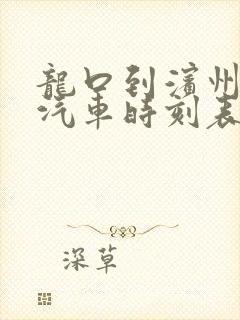 龍口到濱州
汽車時刻表
深草